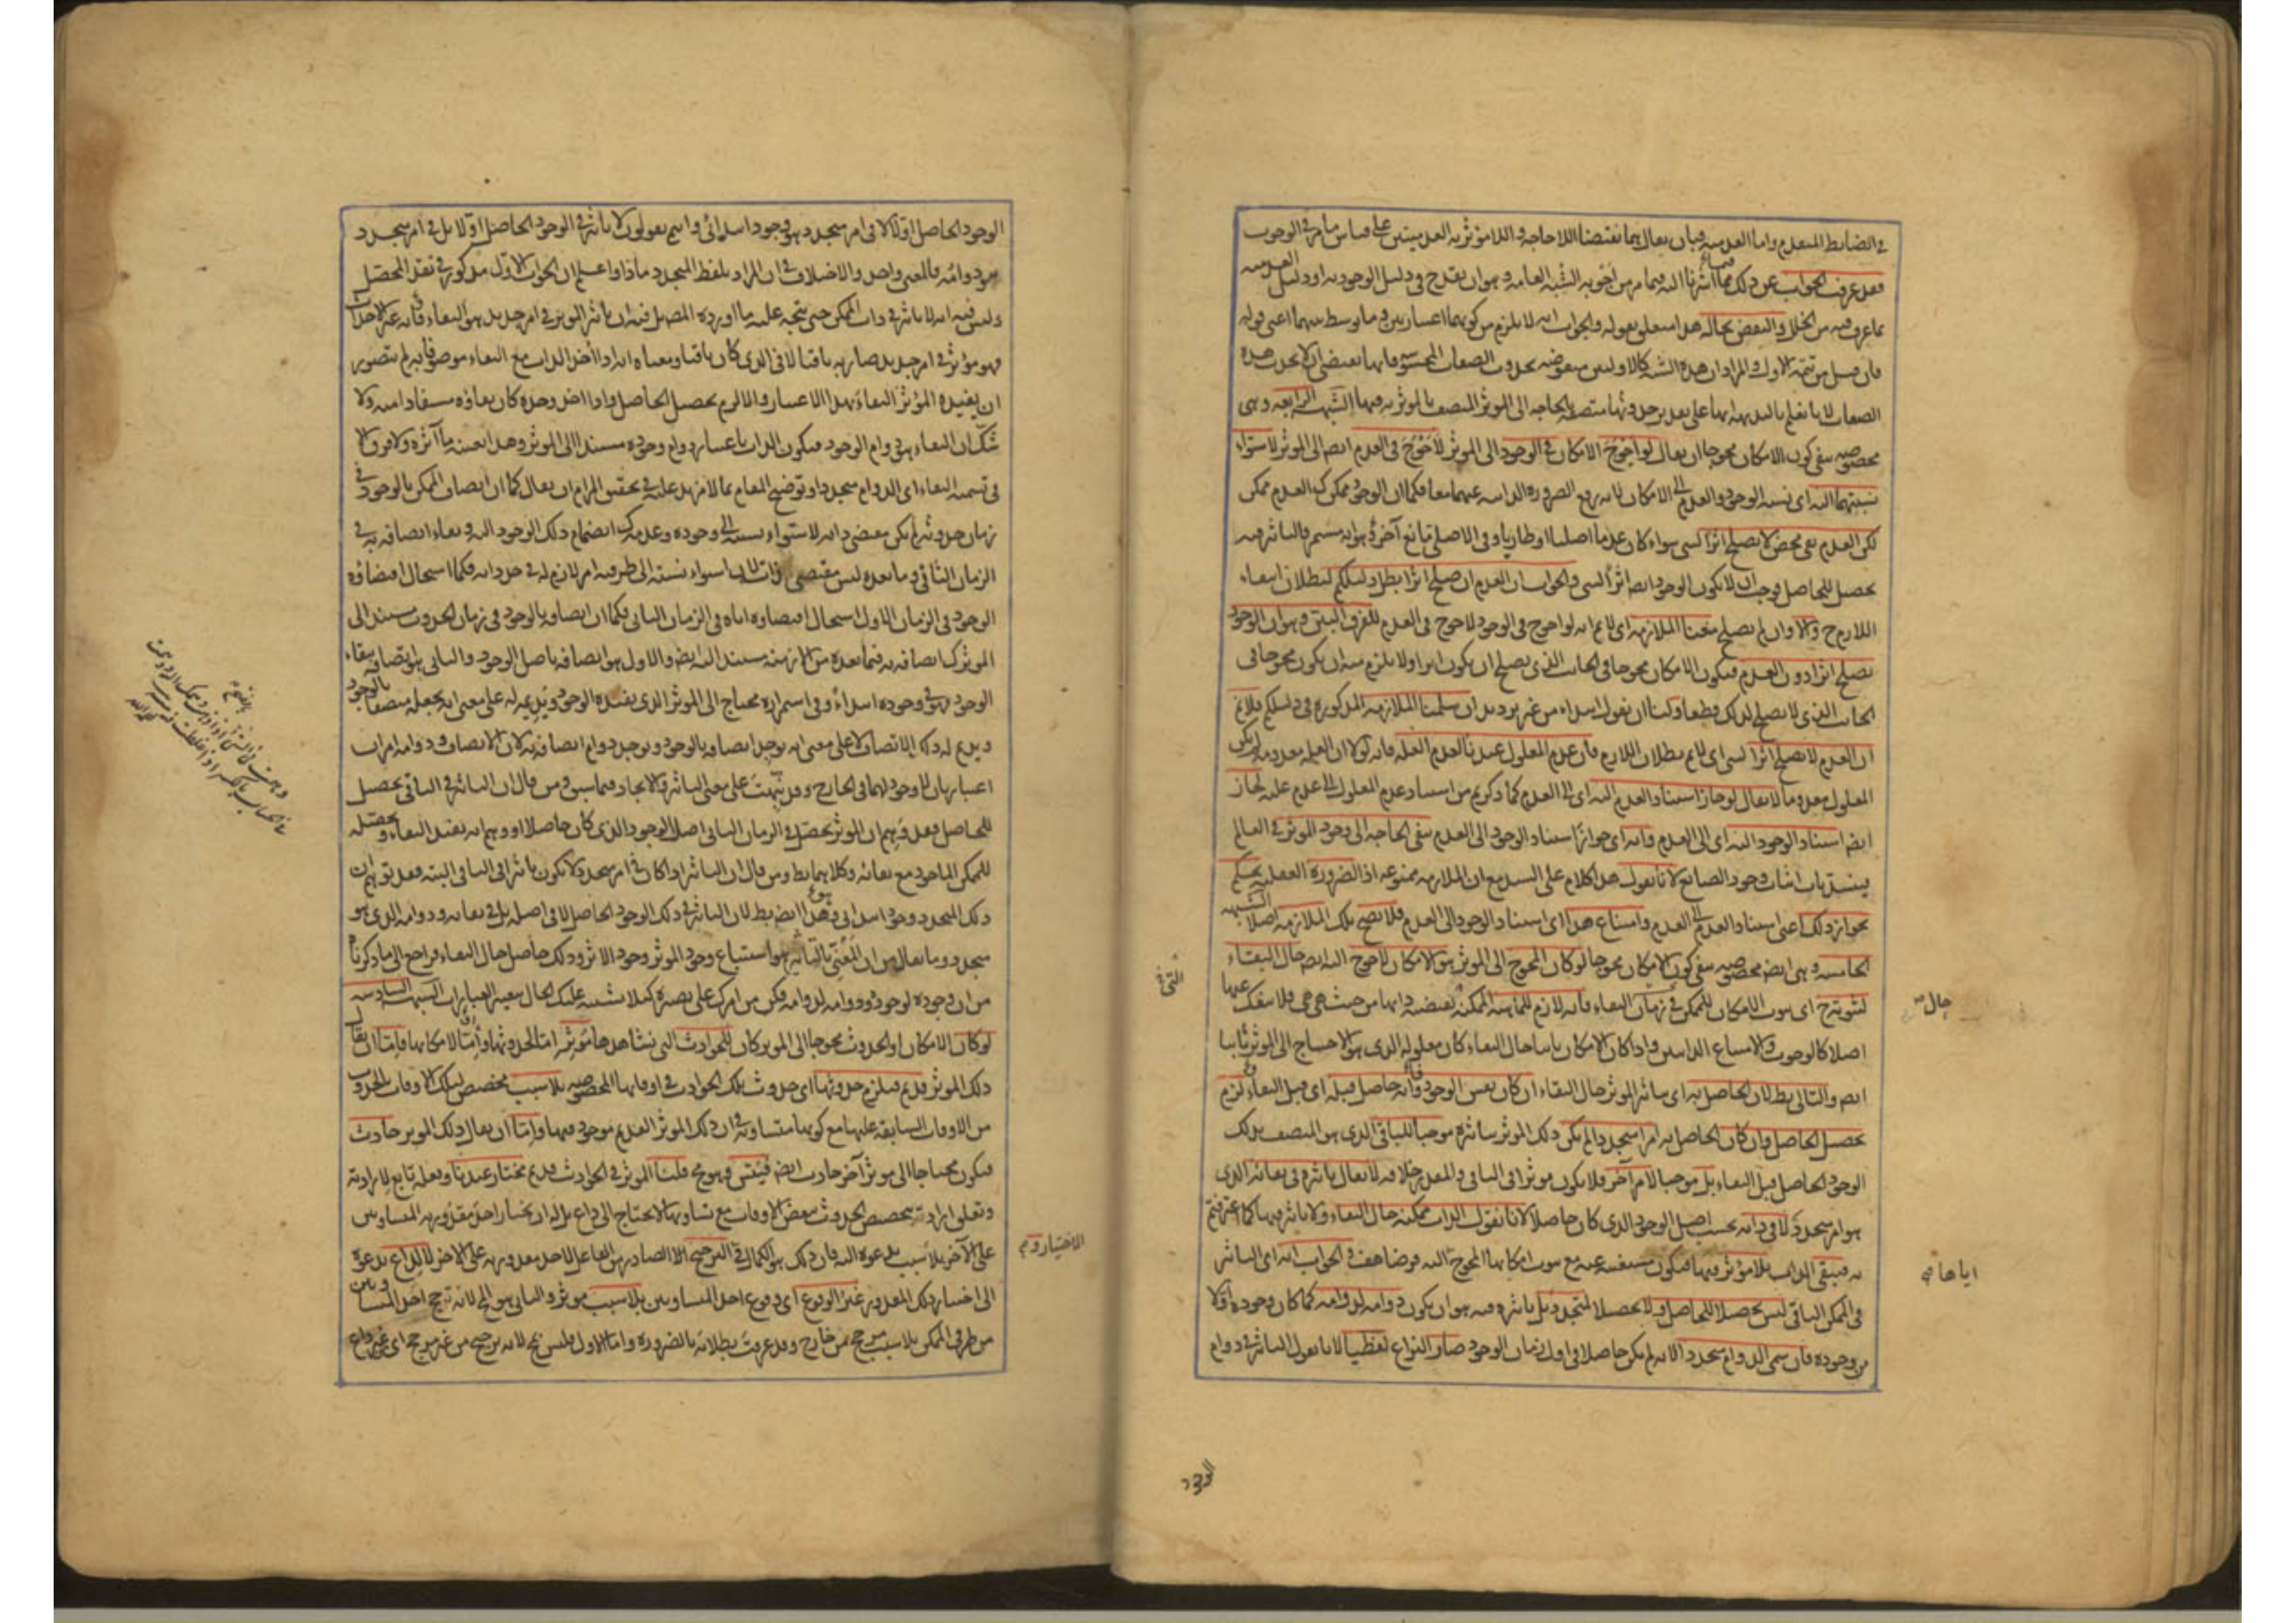 في الضابط المتقدم واما العدمية فبان يقال هما نقيضا اللاحاجة واللامؤثرية العدميتين على قياس ما مر في الوجوب
فقد عرفت الجواب عن ذلك مما اشرنا اليه فيما مر من اجوبة الشبه العامة وهو ان يقدح في دليل الوجودية او دليل العدمية
بما عرف فيه من الخلل والنقض بحاله هذا متعلق بقوله والجواب انه لا يلزم من كونهما اعتباريين وما توسط بينهما اعني قوله
فان قيل من تتمة الاول والمراد ان هذه الشبه كالاوليين منقوضة بحدوث الصفات المحسوسة فانها تقتضي ان لا يحدث هذه
الصفات لانا نعلم بالبديهة انها على تقدير حدوثها متصفة بالحاجة الى المؤثر المتصف بالمؤثرية فيها الشبهة الرابعة وهي
مخصوصة بنفي كون الامكان محوجا ان يقال لو احوج الامكان في الوجود الى المؤثر لاحوج في العدم ايضا الى المؤثر لاستواء
نسبتهما اليه اي نسبة الوجود والعدم الى الامكان لانه رفع الضرورة الذاتية عنهما معا فكما ان الوجود ممكن كذلك العدم ممكن
لكن العدم نفي محض لا يصلح اثرا لشيء سواء كان عدما اصليا او طاريا وفي الاصلي مانع آخر وهو انه مستمر فالتاثير فيه
تحصيل للحاصل وجب ان لا يكون الوجود ايضا اثرا لشيء والجواب ان العدم ان صلح اثرا بطل دليلكم لبطلان انتفاء
اللازم ح والا وان لم يصلح منعنا الملازمة اي لا نم انه لو احوج في الوجود لاحوج في العدم للفرق البين وهو ان الوجود
يصلح اثرا دون العدم فيكون الامكان محوجا في الجانب الذي يصلح ان يكون اثرا ولا يلزم منه ان يكون محوجا في
الجانب الذي لا يصلح لذلك قطعا ولنا ان نقول ابتداء من غير ترديد ان سلمنا الملازمة المذكورة في دليلكم فلا نم
ان العدم لا يصلح اثرا لشيء اي لا نم بطلان اللازم فان عدم المعلول عندنا لعدم العلة فانه لولا ان العلة معدومة لم يكن
المعلول معدوما لا يقال لو جاز استناد العدم اليه اي الى العدم كما ذكرتم من استناد عدم المعلول الى عدم علته لجاز
ايضا استناد الوجود اليه اي الى العدم وانه اي جواز استناد الوجود الى العدم ينفي الحاجة الى وجود المؤثر في العالم
فينسد باب اثبات وجود الصانع لانا نقول هذا كلام على السند مع ان الملازمة ممنوعة اذ الضرورة العقلية تحكم
بجواز ذلك اعني استناد العدم الى العدم وامتناع هذا اي استناد الوجود الى العدم فلا يصح تلك الملازمة اصلا الشبهة
الخامسة وهي ايضا مخصوصة بنفي كون الامكان محوجا لو كان المحوج الى المؤثر هو الامكان لاحوج اليه ايضا حال البقاء
لثبوته ح اي ثبوت الامكان للممكن في زمان البقاء فانه لازم للماهية الممكنة يقتضيه ذاتها من حيث هي هي فلا ينفك عنها
اصلا كالوجوب والامتناع الذاتيين واذا كان الامكان ثابتا حال البقاء كان معلوله الذي هو الاحتياج الى المؤثر ثابتا
ايضا والتالي بط لان الحاصل به اي بتاثير المؤثر حال البقاء ان كان نفس الوجود وانه حاصل قبله اي قبل البقاء لزم
تحصيل الحاصل وان كان الحاصل به امرا متجددا لم يكن ذلك المؤثر بتاثيره موجبا للباقي الذي هو المتصف بذلك
الوجود الحاصل قبل البقاء بل موجبا لامر آخر فلا يكون مؤثرا في الباقي والمقدر خلافه لا يقال تاثيره في بقائه الذي
هو امر متجدد لا في ذاته بحسب اصل الوجود الذي كان حاصلا لانا نقول الذات ممكنة حال البقاء ولا تاثير فيها كما اعترفتم
به فتبقى الذات بلا مؤثر فيها فيكون مستغنية عنه مع ثبوت امكانها المحوج اليه فرضا هف والجواب انه اي التاثير
في الممكن الباقي ليس تحصيلا للحاصل ولا تحصيلا لمتجدد بل تاثيره فيه هو ان يكون دوامه لدوامه كما كان وجوده اولا
من وجوده فان سمي الدوام متجددا لانه لم يكن حاصلا في اول زمان الوجود صار النزاع لفظيا لانا نقول التاثير في دوام
حال
اياها
الوجود
الوجود الحاصل اولا لا في امر متجدد هو وجود ابتدائي وانتم تقولون لا تاثير في الوجود الحاصل اولا بل في امر متجدد
هو دوامه فالمعنى واحد والاختلاف في ان المراد بلفظ المتجدد ماذا واعلم ان الجواب الاول مذكور في نقد المحصل
وليس فيه انه لا تاثير في ذات الممكن حتى يتجه عليه ما اورده المصنف بل فيه ان تاثير المؤثر في امر جديد هو البقاء فانه غير الاحداث
فهو مؤثر في امر جديد صار به باقيا لا في الذي كان باقيا ومعناه انه اذا اخذ الذات مع البقاء موصوفا به لم يتصور
ان يفيده المؤثر البقاء بهذا الاعتبار والا لزم تحصيل الحاصل واذا اخذ وحده كان بقاؤه مستفادا منه ولا
شك ان البقاء هو دوام الوجود فيكون الذات باعتبار دوام وجوده مستندا الى المؤثر وهذا بعينه ما آثره ولا فرق الا
في تسمية البقاء اي الدوام متجددا وتوضيح المقام بما لا مزيد عليه في تحقيق المرام ان يقال كما ان اتصاف الممكن بالوجود في
زمان حدوثه لم يكن مقتضى ذاته لاستواء نسبته الى وجوده وعدمه كذلك انضمام ذلك الوجود اليه وبقاء اتصافه به في
الزمان الثاني وما بعده ليس مقتضى ذاته لان استواء نسبته الى طرفيه امر لازم له في حد ذاته فكما استحال اقتضاؤه
الوجود في الزمان الاول استحال اقتضاؤه اياه في الزمان الثاني فكما ان اتصافه بالوجود في زمان الحدوث مستند الى
المؤثر كذلك اتصافه به فيما بعده من الازمنة مستند اليه ايضا والاول هو اتصافه باصل الوجود والثاني هو اتصافه ببقاء
الوجود فهو في وجوده ابتداء وفي استمراره محتاج الى المؤثر الذي يفيده الوجود ويديمه له على معنى انه يجعله متصفا بالوجود
ويديم له ذلك الاتصاف لا على معنى انه يوجد اتصافه بالوجود ويوجد دوام اتصافه به لان الاتصاف ودوامه امران
اعتباريان لا وجود لهما في الخارج وقد نبهت على معنى التاثير والايجاد فيما سبق ومن قال ان التاثير في الباقي تحصيل
للحاصل فقد وهم ان المؤثر يحصل في الزمان الثاني اصل الوجود الذي كان حاصلا او وهم انه يفيد البقاء ويحصله
للممكن الماخوذ مع بقائه وكلاهما بط ومن قال ان التاثير اذا كان في امر متجدد لا يكون تاثيرا في الباقي البتة فقد توهم ان
ذلك المتجدد وجود ابتدائي وهذا ايضا بط لان التاثير في ذلك الوجود الحاصل لا في اصله بل في بقائه ودوامه الذي هو
متجدد وما يقال من ان المعني بالتاثير هو استتباع وجود المؤثر وجود الاثر وذلك حاصل حال البقاء فراجع الى ما ذكرناه
من ان وجوده لوجوده ودوامه لدوامه فكن من امرك على بصيرة كيلا يشتبه عليك الحال بتغيير العبارات الشبهة السادسة
لو كان الامكان او الحدوث محوجا الى المؤثر كان للحوادث التي نشاهدها مؤثر اما لحدوثها واما لامكانها فاما ان يقال
ذلك المؤثر قديم فيلزم حدوثها اي حدوث تلك الحوادث في اوقاتها المخصوصة بلا سبب مخصص لتلك الاوقات بالحدوث
من الاوقات السابقة عليها مع كونها متساوية في ان ذلك المؤثر القديم موجود فيها واما ان يقال ذلك المؤثر حادث
فيكون محتاجا الى مؤثر آخر حادث ايضا فيتس وهو مح قلنا المؤثر في الحوادث قديم مختار عندنا وفعله تابع لارادته
وتعلق ارادته بتخصيص الحدوث ببعض الاوقات مع تساويها لا يحتاج الى داع بل له ان يختار احد مقدوريه المتساويين
على الآخر بلا سبب يدعوه اليه فان ذلك هو الكمال في الترجيح الصادر من الفاعل لاحد مقدوريه على الآخر لا لداع يدعوه
الى اختيار ذلك المقدور غير الوقوع اي وقوع احد المتساويين بلا سبب مؤثر والثاني هو المح لانه ترجح احد المتساويين
من طرفي الممكن بلا سبب مرجح من خارج وقد عرفت بطلانه بالضرورة واما الاول فليس بمح لانه ترجيح من غير مرجح اي غير داع
الاختيار